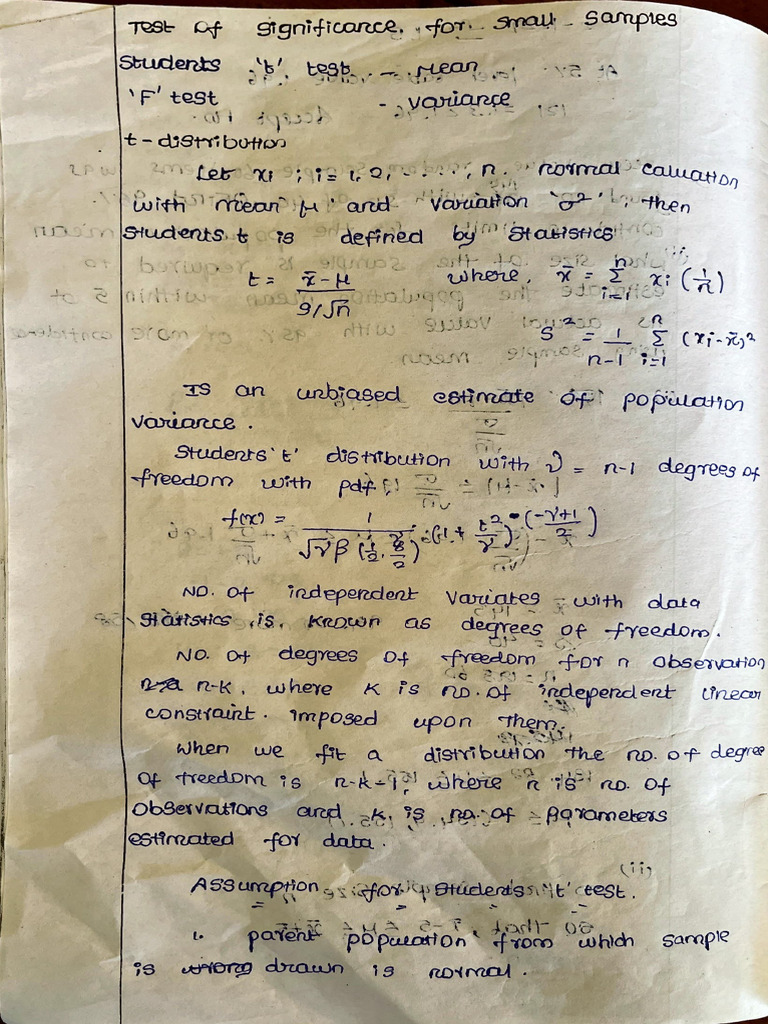 Test of significance for small samples
Students 't' test - Mean
'F' test - variance
t - distribution
Let xi ; i = 1, 2, ...., n. normal caluation
with mean 'μ' and variation 'σ²', then
students t is defined by statistics
t = x̄ - μ / s/√n where, x̄ = Σ i=1 n xi (1/n)
S² = 1/n-1 Σ i=1 n (xi - x̄)²
Is an unbiased estimate of population
variance.
Students 't' distribution with ν = n-1 degrees of
freedom with pdf
f(x) = 1/√γ β (1/2, γ/2) · (1 + t²/γ) · (-γ+1/2)
No. of independent variates with data
statistics is known as degrees of freedom.
No. of degrees of freedom for n observation
n-k, where k is no. of independent linear
constraint. imposed upon them.
when we fit a distribution the no. of degree
of freedom is n-k-1, where n is no. of
observations and k is no. of parameters
estimated for data.
Assumption for students 't' test.
1. parent population from which sample
is drawn is normal.